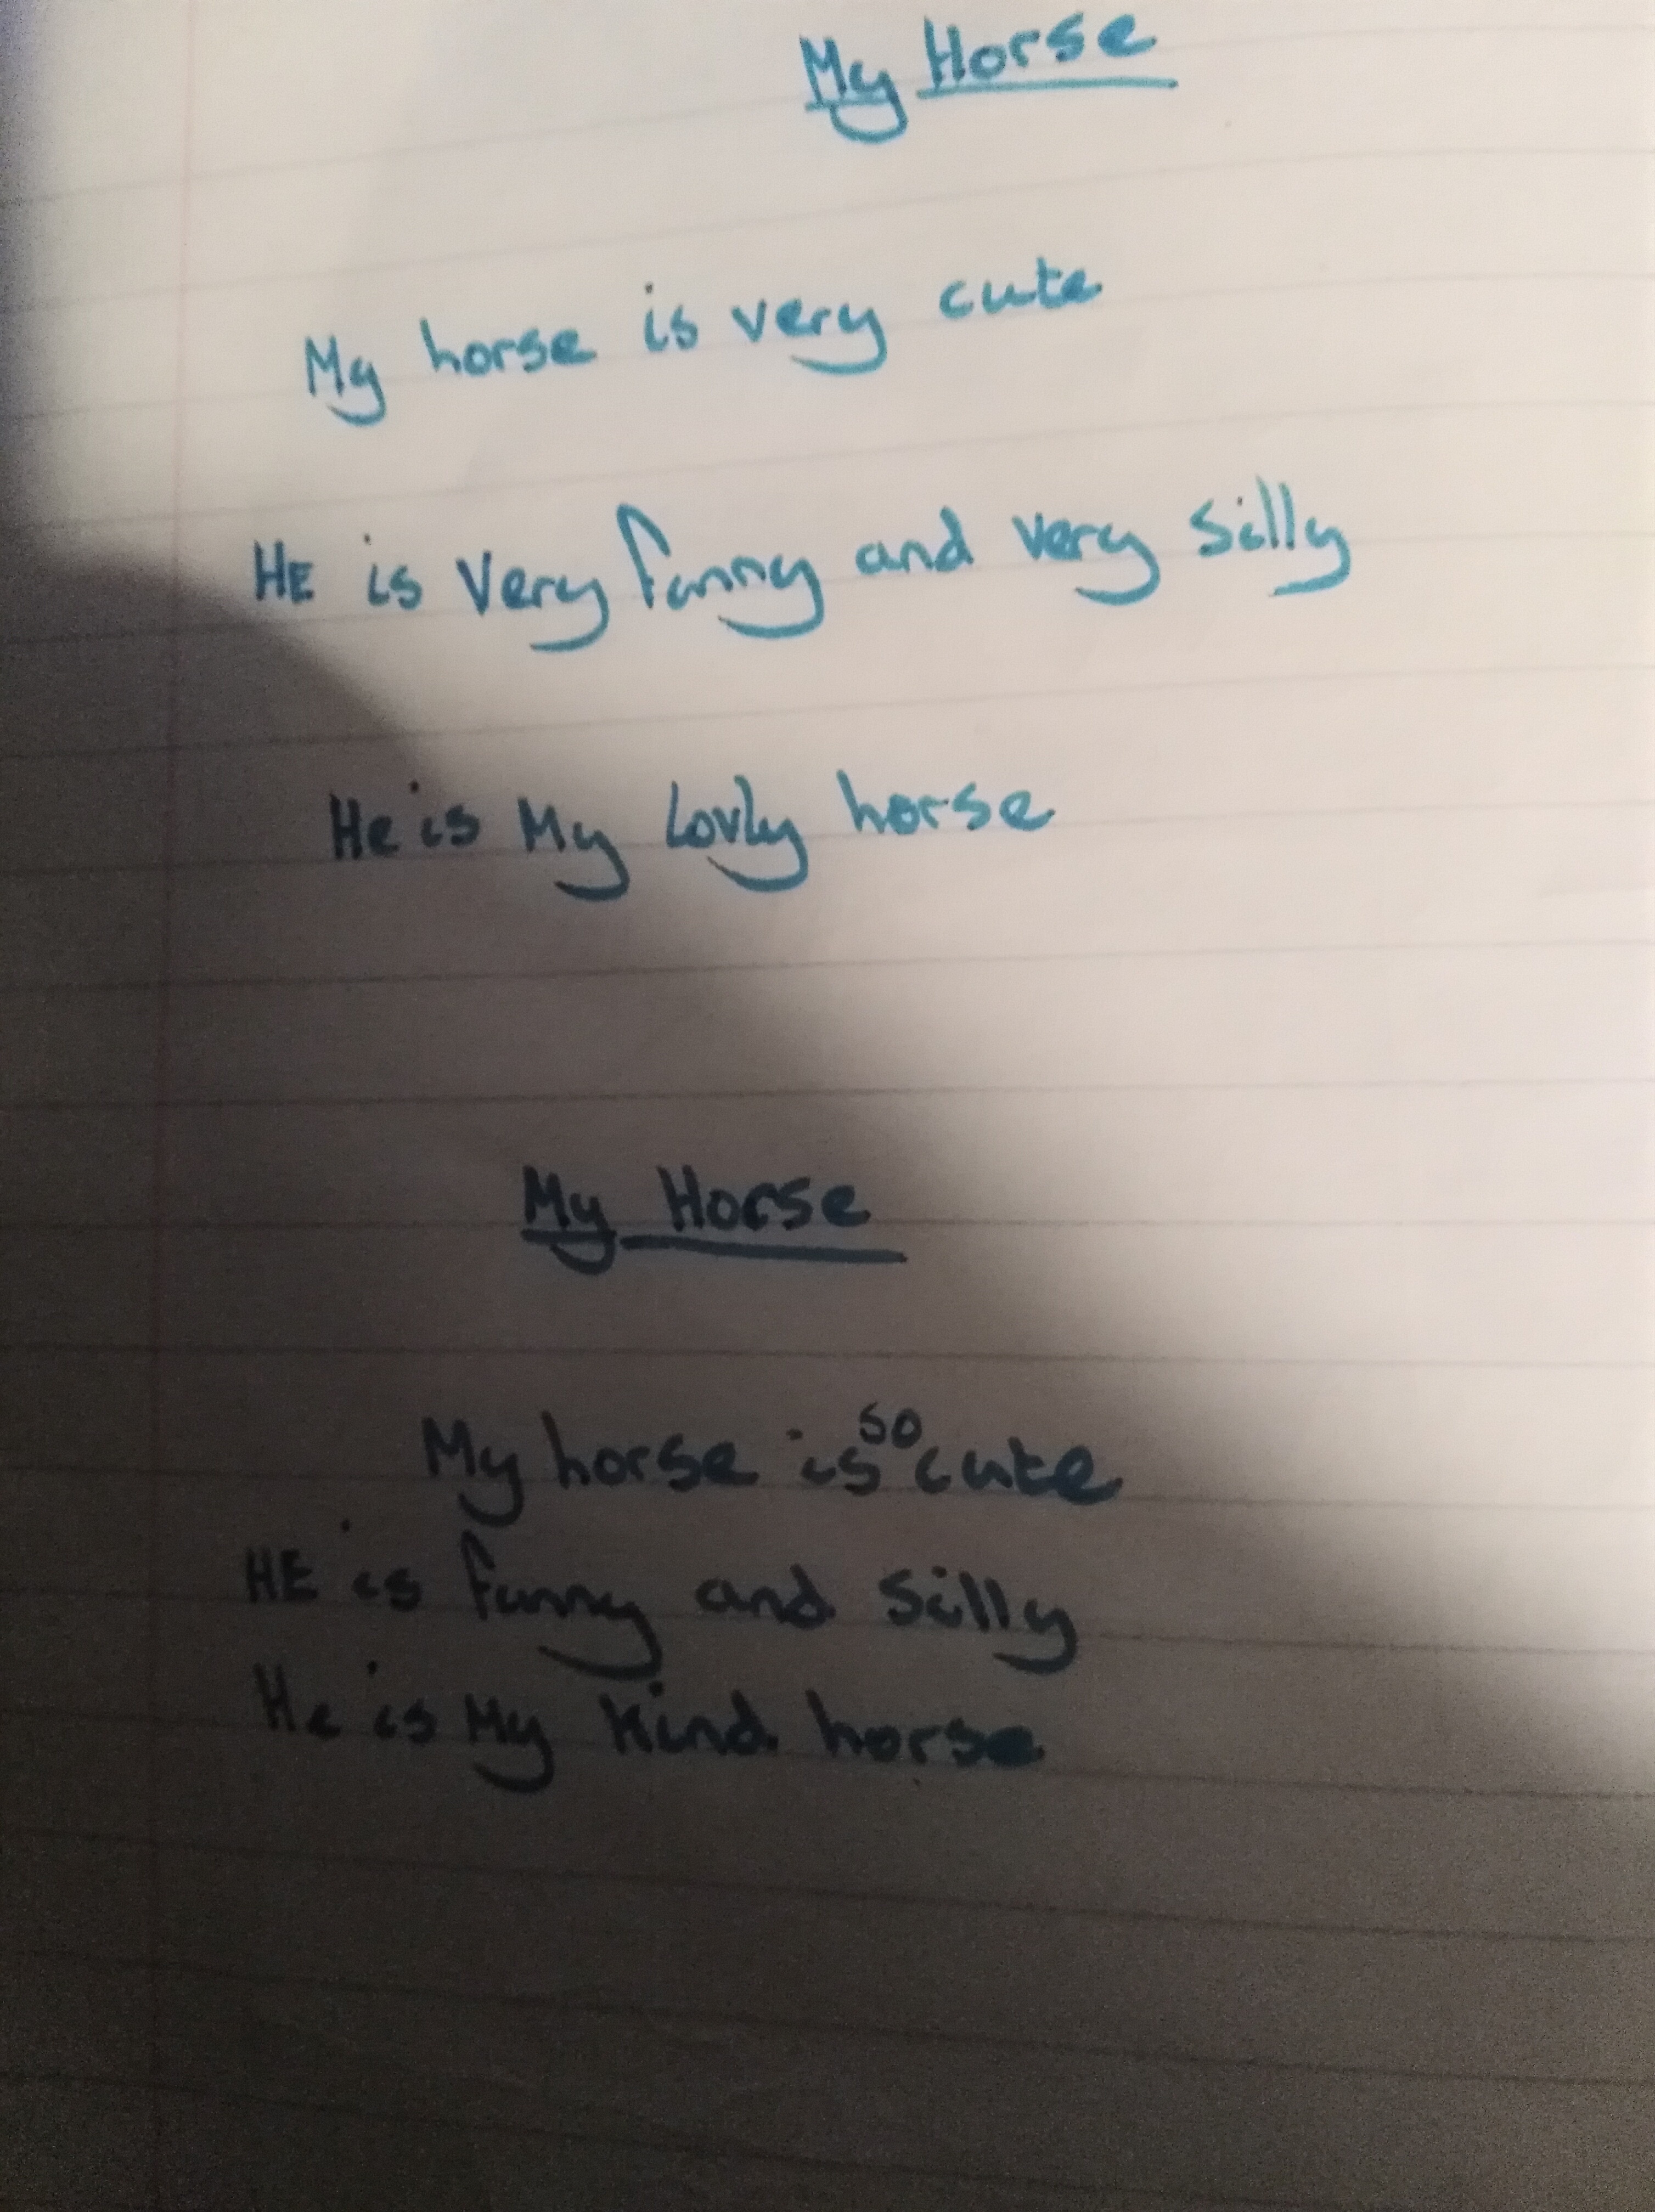 My Horse
My horse is very cute
HE is Very funny and very silly
He is My Lovly horse
My Horse
My horse is so cute
HE is funny and silly
He is My Kind horse